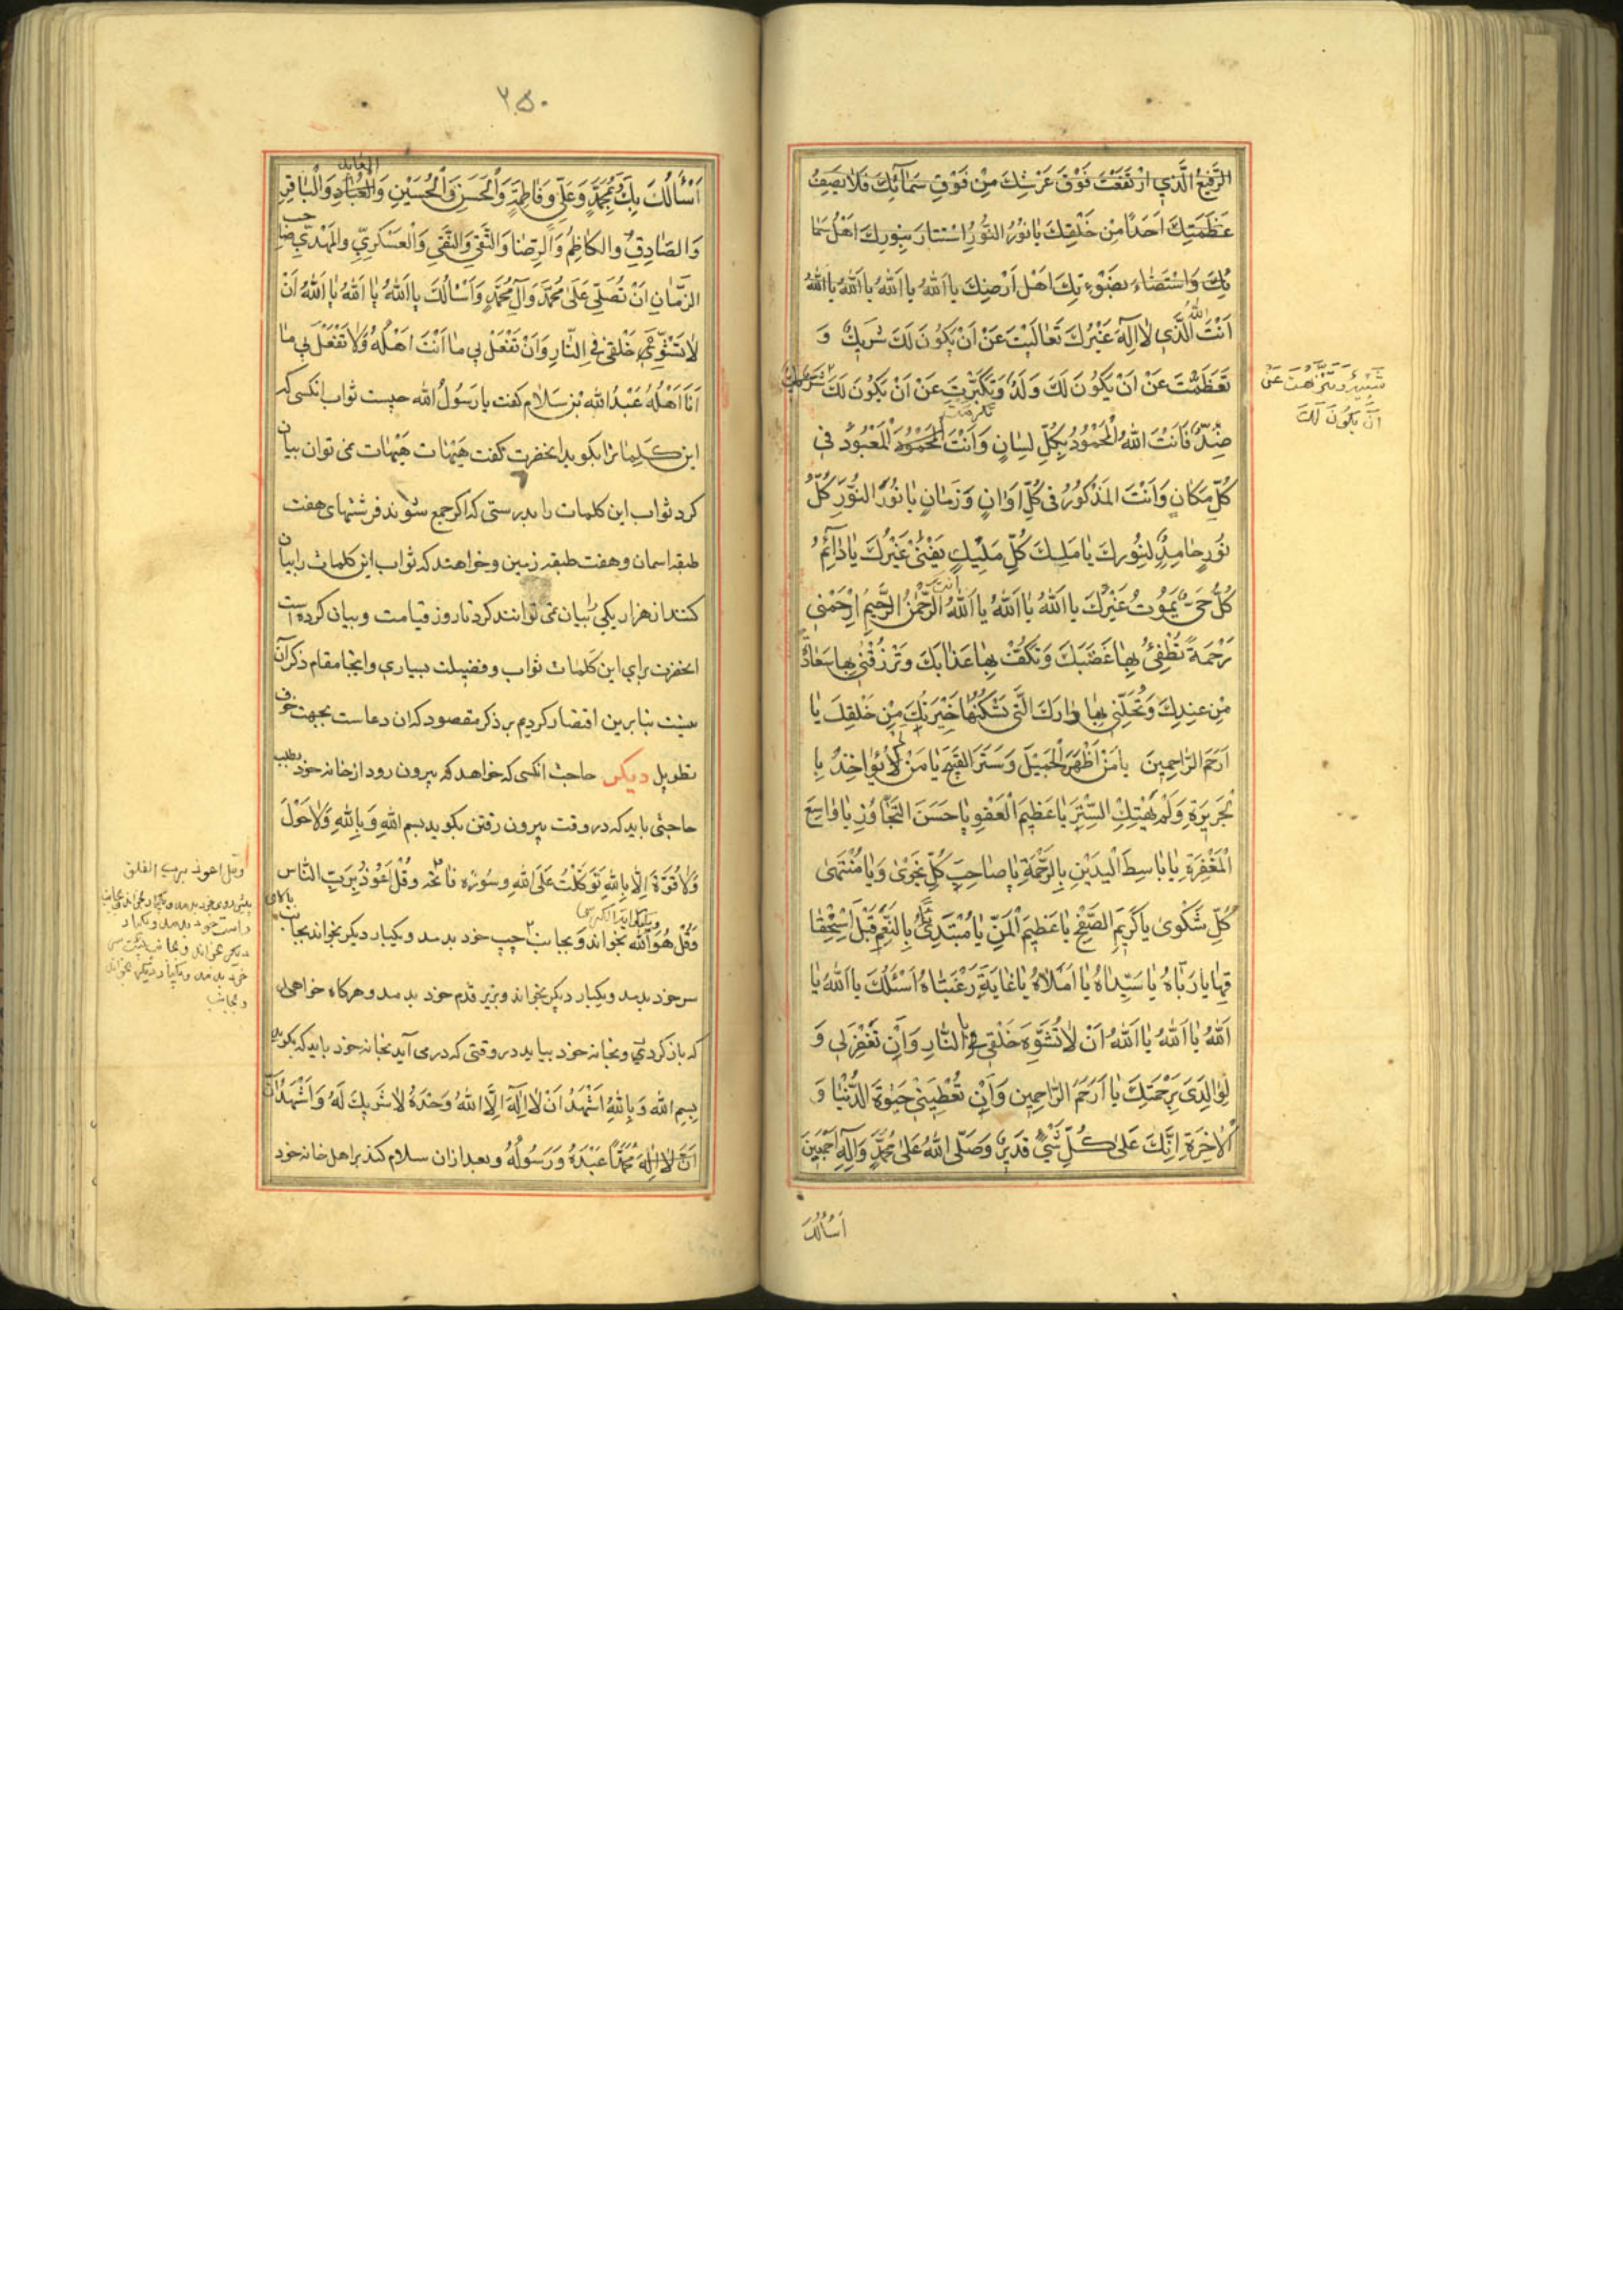 الرَّفیعُ الَّذي ارْتَفَعْتَ فَوْقَ عَرْشِكَ مِنْ فَوْقِ سَمٰآئِكَ فَلٰا یَصِفُ
عَظَمَتِكَ اَحَداً مِنْ خَلْقِكَ یٰا نُورُ النُّورِ اسْتَنٰارَ بِنُورِكَ اَهْلُ سَمٰا
ئِكَ وَاسْتَضٰاءَ بِضَوْءِئِكَ اَهْلَ اَرْضِكَ یٰا اَللهُ یٰا اَللهُ یٰا اَللهُ یٰا اللهُ
اَنْتَ اللهُ الَّذي لٰا اِلٰهَ غَیْرُكَ تَعٰالَیْتَ عَنْ اَنْ یَكُونَ لَكَ شَریكٌ وَ
تَعَظَّمْتَ عَنْ اَنْ یَكُونَ لَكَ وَلَدٌ وَتَكَبَّرْتَ عَنْ اَنْ یَكُونَ لَكَ
شَبیهٌ وَتَنَزَّهْتَ عَنْ
اَنْ یَكُونَ لَكَ
ضِدٌّ فَاَنْتَ اللهُ الْمَحْمُودُ بِكُلِّ لِسٰانٍ وَاَنْتَ الْمَعْبُودُ في
كُلِّ مَكٰانٍ وَاَنْتَ الْمَذْكُورُ في كُلِّ اَوٰانٍ وَزَمٰانٍ یٰا نُورَ النُّورِ كُلُّ
نُورٍ خٰامِدٌ لِنُورِكَ یٰا مَلِكَ كُلِّ مَلیكٍ یَفْنیٰ غَیْرُكَ یٰا دٰآئِمُ
كُلُّ حَيٍّ یَمُوتُ غَیْرُكَ یٰا اَللهُ یٰا اَللهُ یٰا اَللهُ اَنْتَ الرَّحْمٰنُ الرَّحیمُ ارْحَمْني
رَحْمَةً تُطْفِئُ بِهٰا غَضَبَكَ وَتَكُفُّ بِهٰا عَذٰابَكَ وَتَرْزُقُني بِهٰا سَعٰادَةً
مِنْ عِنْدِكَ وَتُحِلُّني بِهٰا دٰارَكَ الَّتي تَسْكُنُهٰا خِیَرَتُكَ مِنْ خَلْقِكَ یٰا
اَرْحَمَ الرّٰاحِمینَ یٰا مَنْ اَظْهَرَ الْجَمیلَ وَسَتَرَ الْقَبیحَ یٰا مَنْ لَمْ یُؤٰاخِذْ بِا
لْجَریرَةِ وَلَمْ یَهْتِكِ السِّتْرَ یٰا عَظیمَ الْعَفْوِ یٰا حَسَنَ التَّجٰاوُزِ یٰا وٰاسِعَ
الْمَغْفِرَةِ یٰا بٰاسِطَ الْیَدَیْنِ بِالرَّحْمَةِ یٰا صٰاحِبَ كُلِّ نَجْویٰ وَیٰا مُنْتَهیٰ
كُلِّ شَكْویٰ یٰا كَریمَ الصَّفْحِ یٰا عَظیمَ الْمَنِّ یٰا مُبْتَدِئُ بِالنِّعَمِ قَبْلَ اسْتِحْقٰا
قِهٰا یٰا رَبّٰاهُ یٰا سَیِّدٰاهُ یٰا اَمَلٰاهُ یٰا غٰایَةَ رَغْبَتٰاهُ اَسْئَلُكَ یٰا اَللهُ یٰا
اَللهُ یٰا اَللهُ یٰا اَللهُ اَنْ لٰا تُشَوِّهَ خَلْقي بِالنّٰارِ وَاَنْ تَغْفِرَ لي وَ
لِوٰالِدَيَّ بِرَحْمَتِكَ یٰا اَرْحَمَ الرّٰاحِمین وَاَنْ تُعْطِیَني حَیٰوةَ الدُّنْیٰا وَ
الْاٰخِرَةِ اِنَّكَ عَلیٰ كُلِّ شَيْءٍ قَدیرٌ وَصَلَّی اللهُ عَلیٰ مُحَمَّدٍ وَآلِهِ اَجْمَعینَ
اَسْأَلُكَ
۲۵۰
اَسْأَلُكَ بِكَ وَبِمُحَمَّدٍ وَعَلِيٍّ وَفٰاطِمَةَ وَالْحَسَنِ وَالْحُسَیْنِ وَالْعٰابِدِ وَالْبٰاقِرِ
وَالصّٰادِقِ وَالكٰاظِمِ وَالرِّضٰا وَالتَّقِيِ وَالنَّقِيِ وَالْعَسْكَرِيِّ وَالْمَهْدِيِّ صٰاحِبِ
الزَّمٰانِ اَنْ تُصَلِّيَ عَلیٰ مُحَمَّدٍ وَآلِ مُحَمَّدٍ وَاَسْأَلُكَ یٰا اَللهُ یٰا اَللهُ یٰا اَللهُ اَنْ
لٰا تُشَوِّهَ خَلْقي فِي النّٰارِ وَاَنْ تَفْعَلَ بي مٰا اَنْتَ اَهْلُهُ وَلٰا تَفْعَلَ بي مٰا
اَنَا اَهْلُهُ عَبْدُ الله بْنِ سَلٰام گفت یا رَسُولُ الله چیست ثواب انکسی که
این کَلِمٰات را بکوید انحضرت گفت هَیْهٰات هَیْهٰات نمی توان بیان
کرد ثواب این کلمات را بدرستی که اکر جمع شوند فرشتهای هفت
طبقه اسمان و هفت طبقه زمین و خواهند که ثواب این کلمات را بیان
کنند از هزار یکی را بیان نمی توانند کرد تا روز قیامت و بیان کرده است
انحضرت برای این کَلِمٰات ثواب و فضیلت بسیاري و اینجا مقام ذکر آن
نیست بنا برین اقتصار کردیم بر ذکر مقصود که ان دعاست بجهت خوف
تطویل دیکر حاجت انکسی که خواهد که بیرون رود از خانه خود بطلب
حاجتی باید که در وقت بیرون رفتن بکوید بسم اللهِ وَبِاللهِ وَلٰا حَوْلَ
وَلٰا قُوَّةَ اِلّٰا بِاللهِ تَوَكَّلْتُ عَلَی اللهِ و سُوره فاتحه وقُلْ اَعُوذُ بِرَبِّ النّٰاس
وقل اعوذ برب الفلق
وَقُلْ هُوَ اَللهُ بخواند و بجانب چپ خود بدمد و یکبار دیکر بخواند بجانب بالای
سر خود بدمد و یکبار دیکر بخواند و بزیر قدم خود بدمد و هرکاه خواهی
که باز کردي و بخانه خود بیاید در وقتی که در می آید بخانه خود باید که بکوید
بِسِم الله وَبِاللهِ اَشْهَدُ اَنْ لٰا اِلٰهَ اِلَّا اللهُ وَحْدَهُ لٰا شَریكَ لَهُ وَاَشْهَدُ اَنَّ
مُحَمَّداً عَبْدُهُ وَرَسُولُهُ و بعد از ان سلام کند بر اهل خانه خود